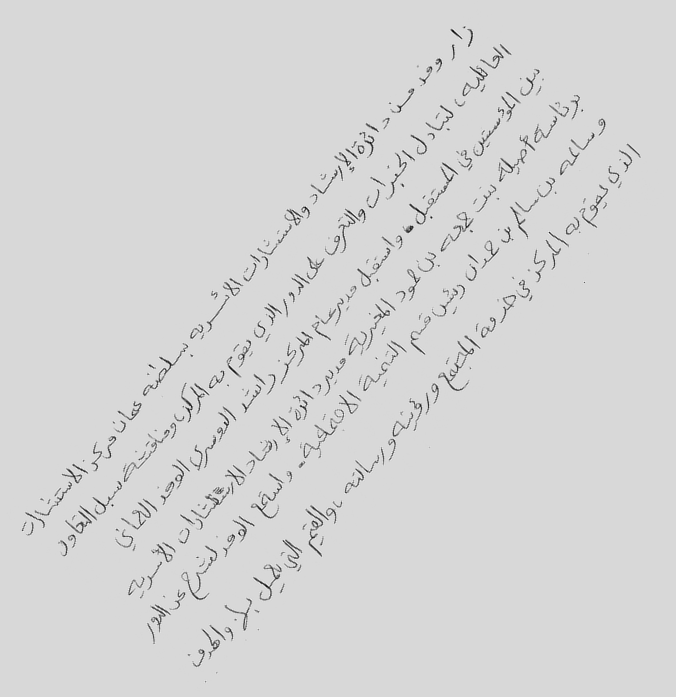 زار وفد من دائرة الإرشاد والاستشارات الأسرية بسلطنة عمان مركز الاستشارات
العائلية، لتبادل الخبرات والتعرف على الدور الذي يقوم به المركز، ومناقشة سبل التعاون
بين المؤسستين في المستقبل. واستقبل مدير عام المركز راشد الدوسري الوفد العماني
برئاسة أصيلة بنت جمعة بن حمود المغيرية مدير دائرة الإرشاد الاستشارات الأسرية
وساعه بن سالم بن حمدان رئيس قسم التنمية الاجتماعية. واستمع الوفد لشرح عن الدور
الذي يقوم به المركز في خدمة المجتمع ورؤيته ورسالته، والقيم التي يعمل بها. والهدف